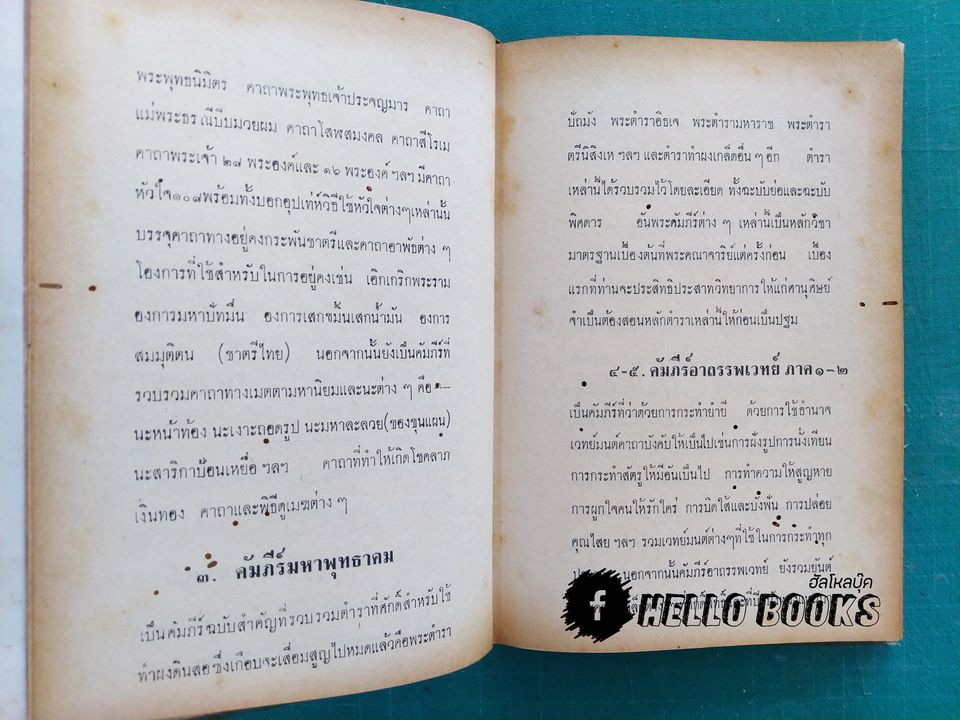 พระพุทธนิมิตร คาถาพระพุทธเจ้าประจญมาร คาถา
แม่พระธรณีบีบมวยผม คาถาโสฬสมงคล คาถาสีโรเม
คาถาพระเจ้า ๒๘ พระองค์และ ๑๖ พระองค์ ฯลฯ มีคาถา
หัวใจ๑๐๘พร้อมทั้งบอกอุปเท่ห์วิธีใช้หัวใจต่างๆเหล่านั้น
บรรจุคาถาทางอยู่คงกระพันชาตรีและคาถาอาพัธต่าง ๆ
โองการที่ใช้สำหรับในการอยู่คงเช่น เอิกเกริกพระราม
องการมหาปัทมื่น องการเสกขมิ้นเสกน้ำมัน องการ
สมมุติตน (ชาตรีไทย) นอกจากนั้นยังเป็นคัมภีร์ที่
รวบรวมคาถาทางเมตตามหานิยมและนะต่าง ๆ คือ—
นะหน้าท้อง นะเงาะถอดรูป นะมหาละลวย(ของขุนแผน)
นะสาริกาป้อนเหยื่อ ฯลฯ คาถาที่ทำให้เกิดโชคลาภ
เงินทอง คาถาและพิธีดูเมฆต่าง ๆ
๓. คัมภีร์มหาพุทธาคม
เป็นคัมภีร์ฉบับสำคัญที่รวบรวมตำราที่ศักดิ์สำหรับใช้
ทำผงดินสอซึ่งเกือบจะเสื่อมสูญไปหมดแล้วคือพระตำรา
ปัถมัง พระตำราอิธเจ พระตำรามหาราช พระตำรา
ตรีนิสิงเห ฯลฯ และตำราทำผงเกล็ดอื่น ๆ อีก ตำรา
เหล่านี้ได้รวบรวมไว้โดยละเอียด ทั้งฉะบับย่อและฉะบับ
พิศดาร อันพระคัมภีร์ต่าง ๆ เหล่านี้เป็นหลักวิชา
มาตรฐานเบื้องต้นที่พระคณาจารย์แต่ครั้งก่อน เบื้อง
แรกที่ท่านจะประสิทธิประสาทวิทยาการให้แก่ศานุศิษย์
จำเป็นต้องสอนหลักตำราเหล่านี้ให้ก่อนเป็นปฐม
๔-๕. คัมภีร์อาถรรพเวทย์ ภาค ๑-๒
เป็นคัมภีร์ที่ว่าด้วยการกระทำยำยี ด้วยการใช้อำนาจ
เวทย์มนต์คาถาบังคับให้เป็นไปเช่นการฝังรูปการนั่งเทียน
การกระทำสัตรูให้มีอันเป็นไป การทำความให้สูญหาย
การผูกใจคนให้รักใคร่ การบิดไส้และบังฟัน การปล่อย
คุณไสย ฯลฯ รวมเวทย์มนต์ต่างๆที่ใช้ในการกระทำทุก
นอกจากนั้นคัมภีร์อาถรรพเวทย์ ยังรวมยันต์
ฮัลโหลบุ๊ค
HELLO BOOKS